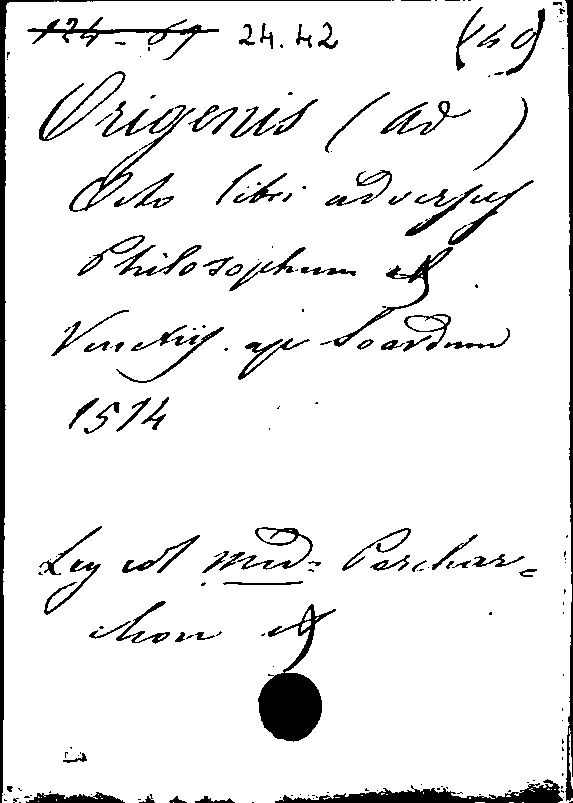 124-69 24.42 (60)
Origenis (Ad)
Octo libri adversus
Philosophum et
Venetiis. ap Soardum
1514
Leg est
chon et